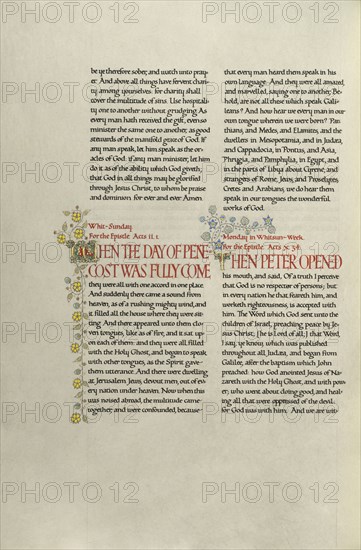 be ye therefore sober, and watch unto pray-
er. And above all things have fervent chari-
ty among yourselves: for charity shall
cover the multitude of sins. Use hospitali-
ty one to another without grudging. As
every man hath received the gift, even so
minister the same one to another, as good
stewards of the manifold grace of God. If
any man speak, let him speak as the ora-
cles of God: if any man minister, let him
do it as of the ability which God giveth;
that God in all things may be glorified
through Jesus Christ, to whom be praise
and dominion for ever and ever. Amen.
Whit-Sunday
For the Epistle. Acts ii. 1.
WHEN THE DAY OF PENE
COST WAS FULLY COME
they were all with one accord in one place.
And suddenly there came a sound from
heaven, as of a rushing mighty wind, and
it filled all the house where they were sit-
ting. And there appeared unto them clo-
ven tongues, like as of fire, and it sat up-
on each of them: and they were all filled
with the Holy Ghost, and began to speak
with other tongues, as the Spirit gave
them utterance. And there were dwelling
at Jerusalem Jews, devout men, out of ev-
ery nation under heaven. Now when this
was noised abroad, the multitude came
together, and were confounded, because
that every man heard them speak in his
own language. And they were all amazed,
and marvelled, saying one to another, Be-
hold, are not all these which speak Gali-
leans? And how hear we every man in our
own tongue wherein we were born? Par
thians, and Medes, and Elamites, and the
dwellers in Mesopotamia, and in Judæa,
and Cappadocia, in Pontus, and Asia,
Phrygia, and Pamphylia, in Egypt, and
in the parts of Libya about Cyrene, and
strangers of Rome, Jews and Proselytes,
Cretes and Arabians, we do hear them
speak in our tongues the wonderful
works of God.
Monday in Whitsun-Week.
For the Epistle. Acts x. 34.
THEN PETER OPENED
his mouth, and said, Of a truth I perceive
that God is no respecter of persons; but
in every nation he that feareth him, and
worketh righteousness, is accepted with
him. The Word which God sent unto the
children of Israel, preaching peace by Je-
sus Christ; (he is Lord of all;) that Word,
I say, ye know, which was published
throughout all Judæa, and began from
Galilee, after the baptism which John
preached: how God anointed Jesus of Na-
zareth with the Holy Ghost, and with pow-
er; who went about doing good, and heal-
ing all that were oppressed of the devil:
for God was with him. And we are wit-